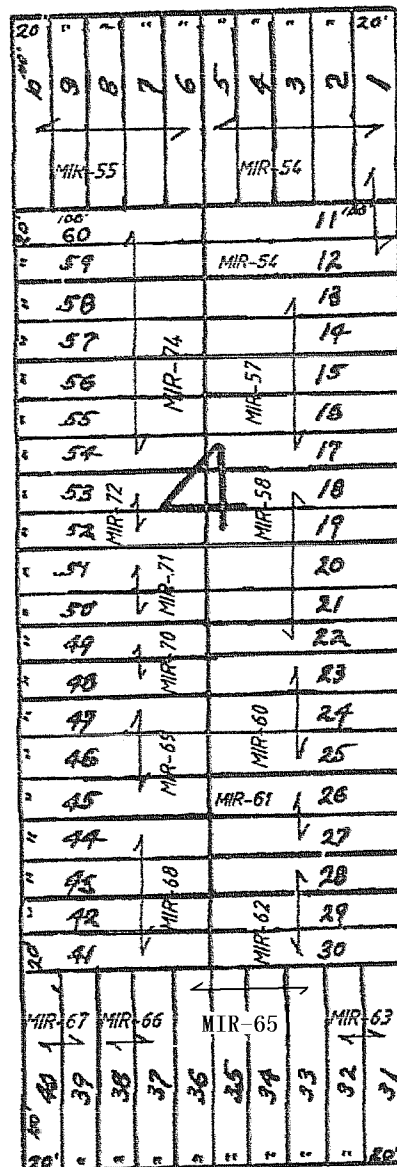 20' " " " " " " " " 20'
10 9 8 7 6 5 4 3 2 1
100'
MIR-55 MIR-54
20' 100' 60 11 100'
" 59 MIR-54 12
" 58 13
" 57 14
MIR-74 MIR-57
" 56 15
" 55 16
" 54 17
4
" 53 MIR-72 MIR-58 18
" 52 19
" 51 MIR-71 20
" 50 21
" 49 MIR-70 22
" 48 23
" 47 24
MIR-69 MIR-60
" 46 25
" 45 MIR-61 26
" 44 27
" 43 28
MIR-68 MIR-62
" 42 29
20' 41 30
MIR-67 MIR-66 MIR-65 MIR-63
40 39 38 37 36 35 34 33 32 31
100'
20' " " " " " " " " 20'